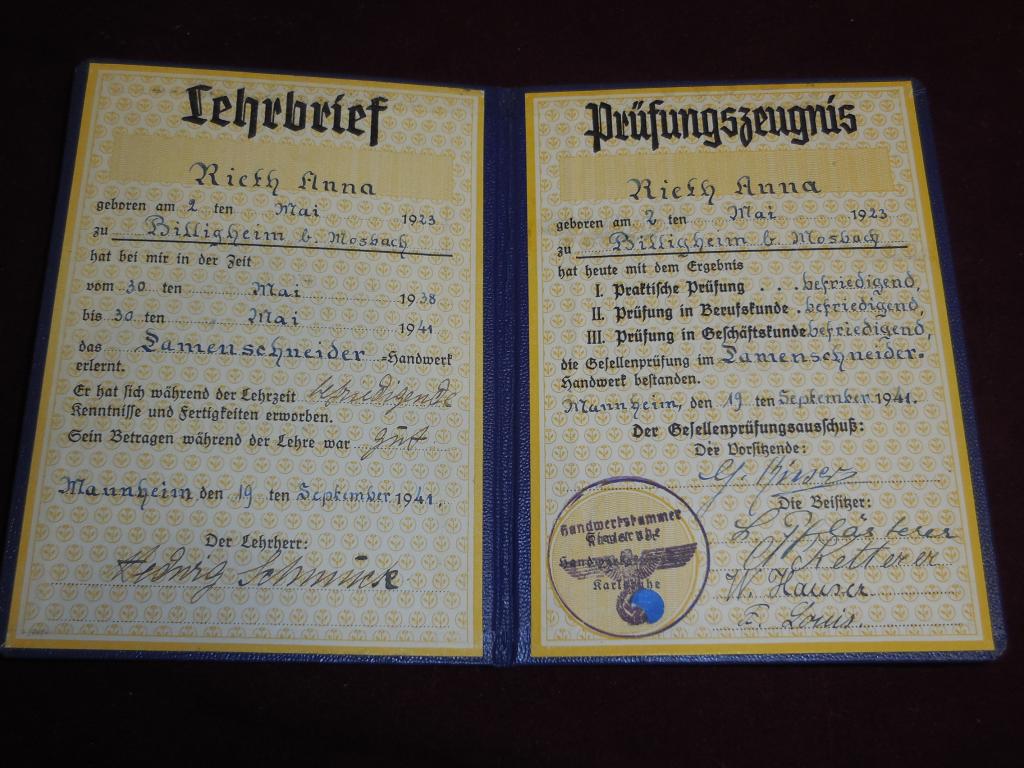 Lehrbrief
Rieth Anna
geboren am 2 ten Mai 1923
zu Billigheim b. Mosbach
hat bei mir in der Zeit
vom 30 ten Mai 1938
bis 30 ten Mai 1941
das Damenschneider =Handwerk
erlernt.
Er hat sich während der Lehrzeit befriedigende
Kenntnisse und Fertigkeiten erworben.
Sein Betragen während der Lehre war gut
Mannheim den 19 ten September 1941.
Der Lehrherr:
Hedwig Schmuck
Prüfungszeugnis
Rieth Anna
geboren am 2 ten Mai 1923
zu Billigheim b. Mosbach
hat heute mit dem Ergebnis
I. Praktische Prüfung . . . befriedigend,
II. Prüfung in Berufskunde . befriedigend,
III. Prüfung in Geschäftskunde befriedigend,
die Gesellenprüfung im Damenschneider-
Handwerk bestanden.
Mannheim, den 19 ten September 1941.
Der Gesellenprüfungsausschuß:
Der Vorsitzende:
Die Beisitzer:
L. Pflästerer
Ketterer
W. Hauser
F. Louis
Handwerkskammer
Karlsruhe
Karlsruhe